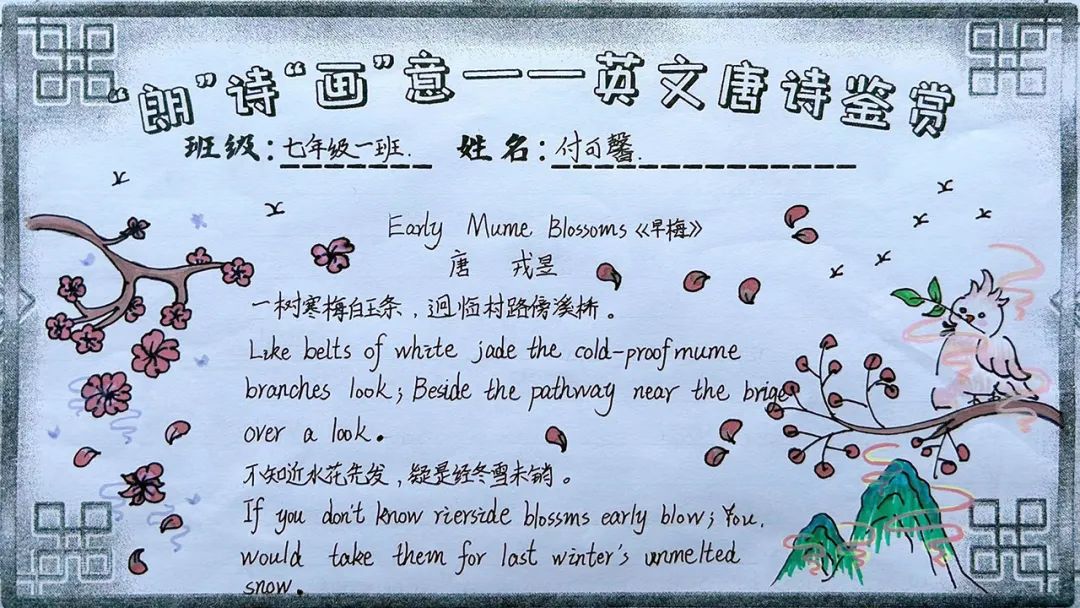 “朗”诗“画”意——英文唐诗鉴赏
班级:七年级一班. 姓名:付可馨.
Early Mume Blossoms《早梅》
唐 戎昱
一树寒梅白玉条，迥临村路傍溪桥。
Like belts of white jade the cold-proof mume
branches look; Beside the pathway near the brige
over a look.
不知近水花先发，疑是经冬雪未销。
If you don't know rierside blossms early blow; You.
would take them for last winter's unmelted
snow.